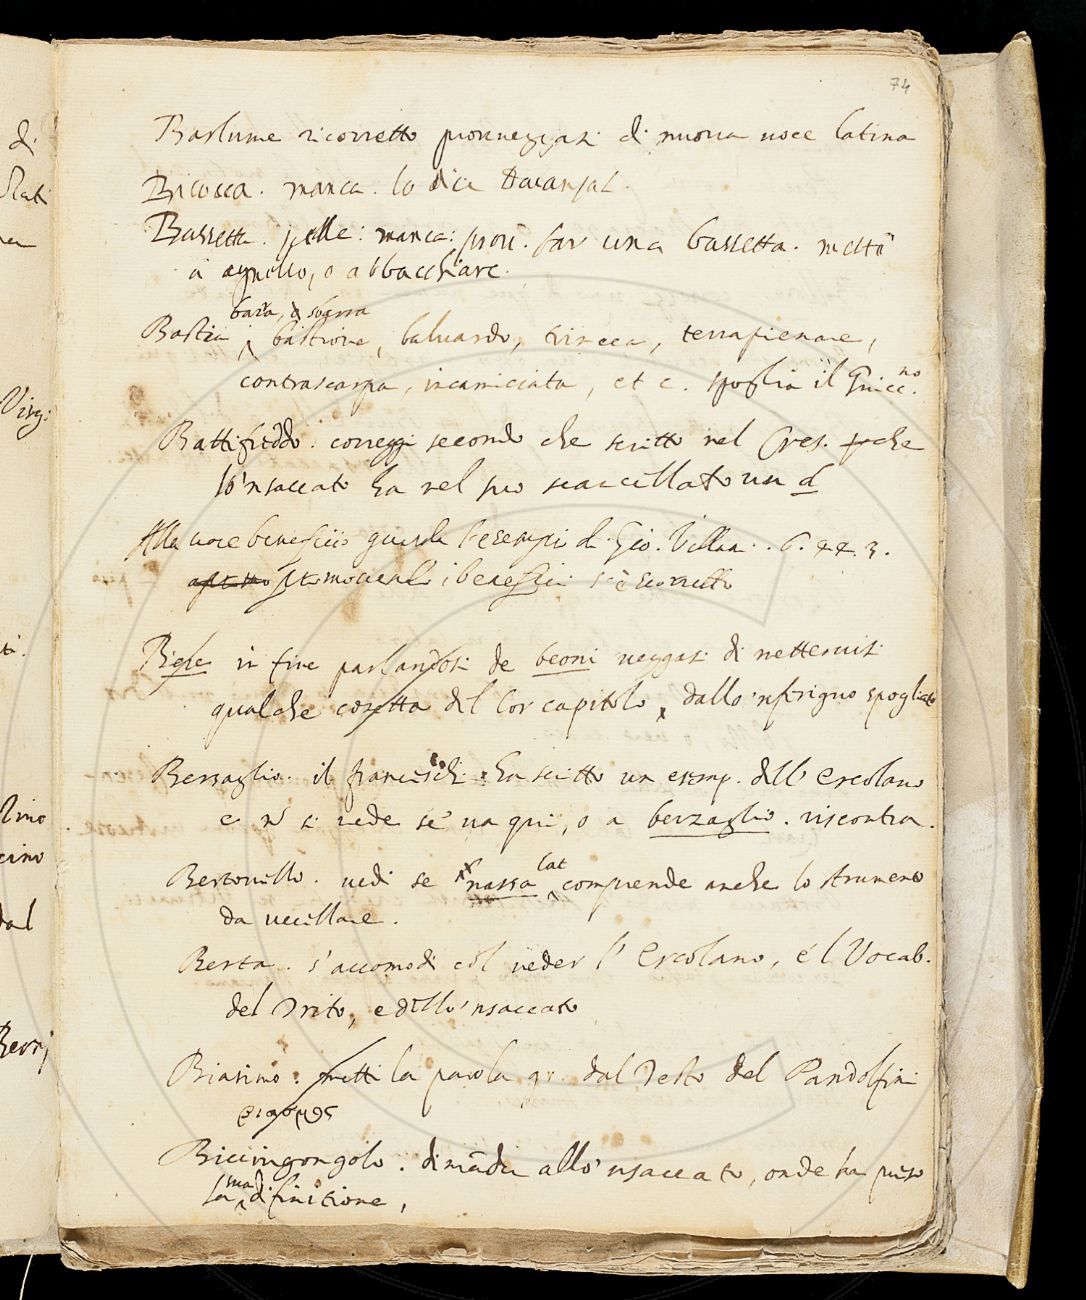 74
Barlume ricorretto provveggasi di nuova voce latina
Bicocca. manca. lo dice Davanzat.
Bassetta. pelle: manca: prov. far una bassetta. metti
a agnello, o abbacchiare.
bara, o sbarra
Bastia, bastione, baluardo, trincea, terrapienare,
contrascarpa, incamiciata, etc. spoglia il Guicc.no
Battifreddo. correggi secondo che scritto nel Cres. che
lo'nsaccato ha nel suo scancellato un d
Alla voce beneficio guarda l'esempi di Gio. Villani. 6. 44. 3.
i benefici s'è scorretto
Bigle in fine parlandosi de beoni veggasi di mettervisi
qualche cosetta del lor capitolo, dallo'nferigno spogliato
Bersaglio. il franceschi: ha scritto un esemp. dell' Ercolano
e nō si vede se va qui, o a berzaglio. riscontra.
Bertovello. vedi se nassa lat comprende anche lo strumento
da uccellare.
Berta. s'accomodi col veder l'Ercolano, e'l Vocab.
del Trito, e dello'nsaccato
Biasimo: metti la parola gr. dal Testo del Pandolfini
Biccingongolo. dimāda allo'nsaccato, onde ha preso
la sua difinitione,
di
Virg:
dal